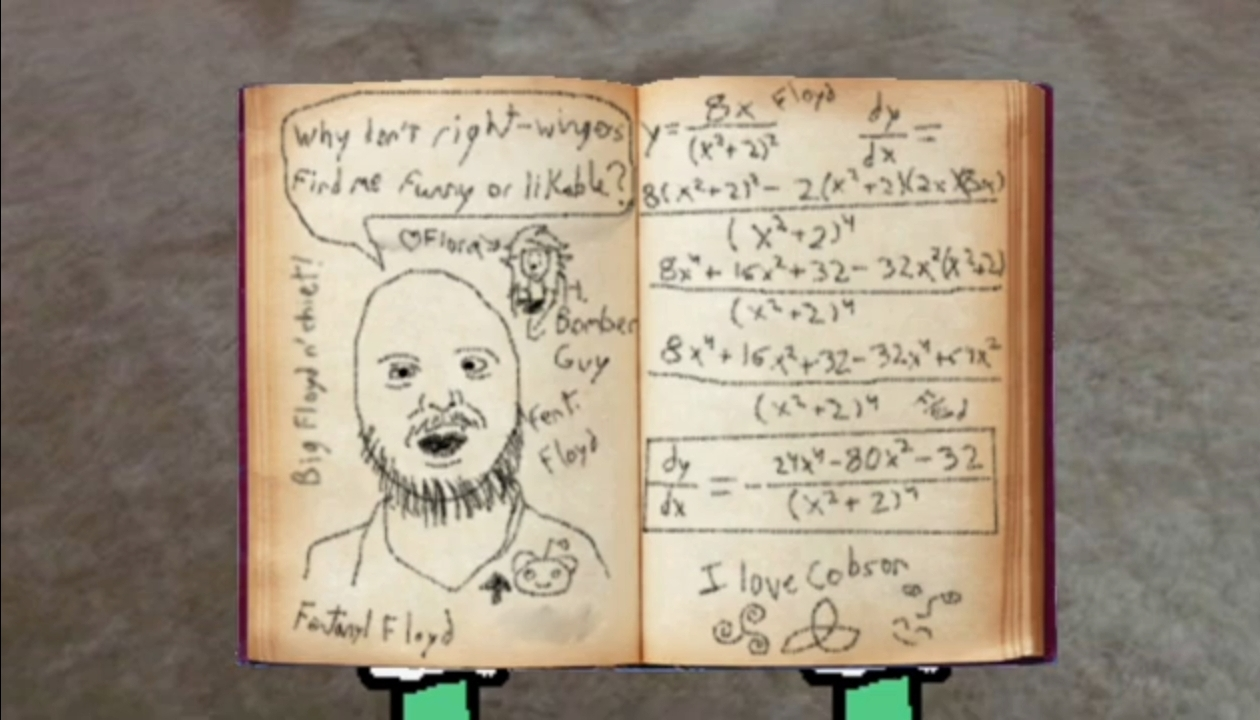 Why don't right-wingers
Find me funny or likable?
♡Flora
H.
Bomber
Guy
Fent.
Floyd
Big Floyd n' chief!
Fentanyl Floyd
Floyd
y = 8x / (x²+2)² dy/dx =
8(x²+2)² - 2(x²+2)(2x)(8x)
(x²+2)⁴
8x⁴+16x²+32-32x²(x²+2)
(x²+2)⁴
8x⁴+16x²+32-32x⁴+64x²
(x²+2)⁴
dy/dx = - 24x⁴-80x²-32 / (x²+2)⁴
I love Cobson